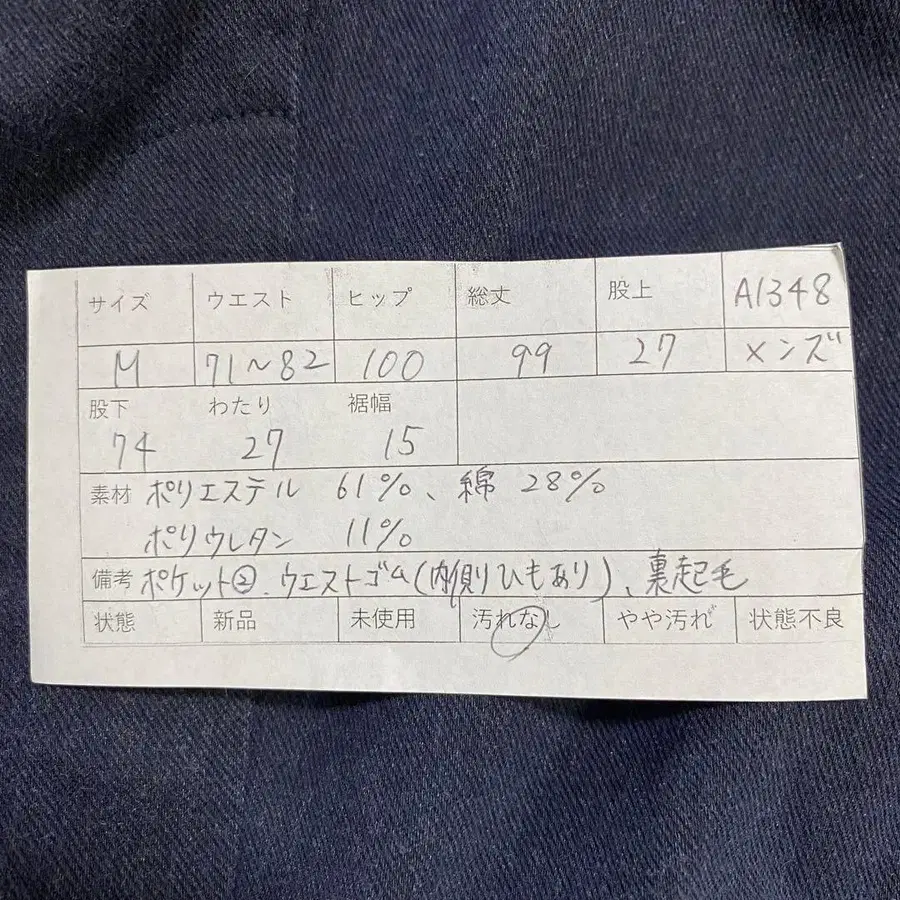 サイズ ウエスト ヒップ 総丈 股上 A1348
M 71～82 100 99 27 メンズ
股下 わたり 裾幅
74 27 15
素材 ポリエステル 61%、綿 28%
ポリウレタン 11%
備考 ポケット②、ウエストゴム(内側ひもあり)、裏起毛
状態 新品 未使用 汚れなし やや汚れ 状態不良